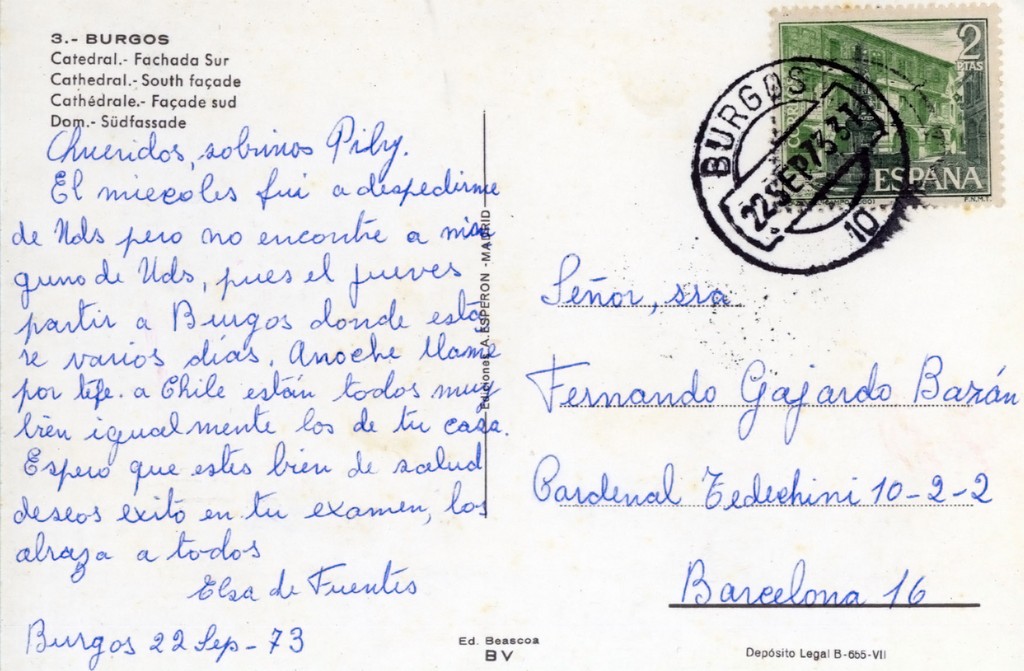 3.- BURGOS
Catedral.- Fachada Sur
Cathedral.- South façade
Cathédrale.- Façade sud
Dom.- Südfassade
Chueridos, sobrinos Piby.
El miercoles fui a despedirme
de Uds pero no encontre a nin
guno de Uds, pues el jueves
partir a Burgos donde esta
re varios días. Anoche llame
por tlfe. a Chile están todos muy
bien igualmente los de tu casa.
Espero que estes bien de salud
deseos exito en tu examen, los
abraza a todos
Elsa de Fuentes
Burgos 22 Sep- 73
Ediciones A. ESPERON - MADRID
Ed. Beascoa
BV
2
PTAS
CORREOS
ESPAÑA
F.N.M.T.
BURGOS
22 SEP 73
10
Señor, sra
Fernando Gajardo Bazán
Cardenal Tedechini 10-2-2
Barcelona 16
Depósito Legal B-655-VII